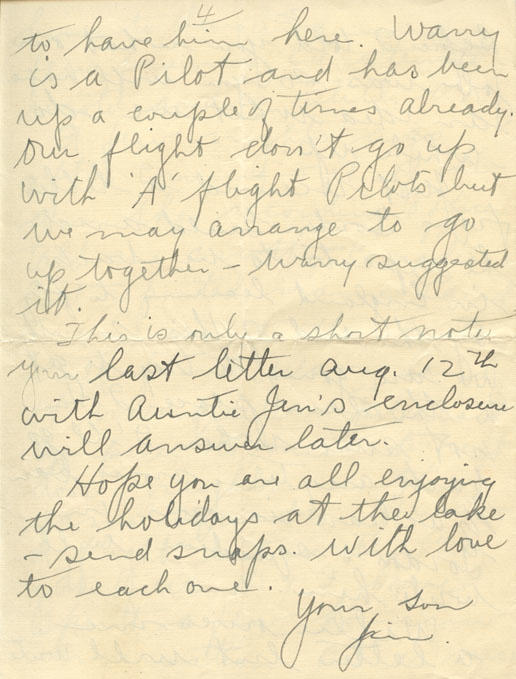 4
to have him here. Warry
is a Pilot and has been
up a couple of times already.
Our flight don't go up
with 'A' flight Pilots but
we may arrange to go
up together - Warry suggested
it.
This is only a short note
your last letter Aug. 12th
with Auntie Jen's enclosure
will answer later.
Hope you are all enjoying
the holidays at the lake
- send snaps. With love
to each one.
Your son
Jim.